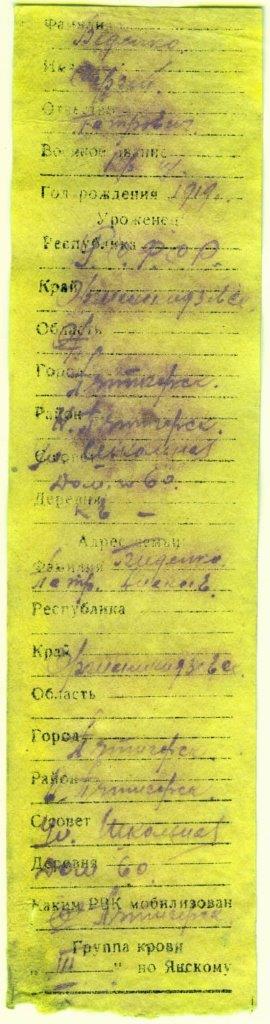 Фамилия
Имя
Отчество Петрович
Военное звание
Год рождения 1919г.
Уроженец
Республика Р.С.Ф.С.Р.
Край Орджоникидзевск.
Область
Город Пятигорск.
Район Н. Пятигорск.
С/совет ул. Школьная
Дом. № 60.
Деревня кв –
Адрес семьи
Фамилия
Петр.
Республика
Край Орджоникидзевск.
Область
Город Пятигорск
Район Пятигорск
С/совет Ул. Школьная
Деревня Дом 60.
Каким РВК мобилизован
Пятигорск
Группа крови
„ III “ по Янскому